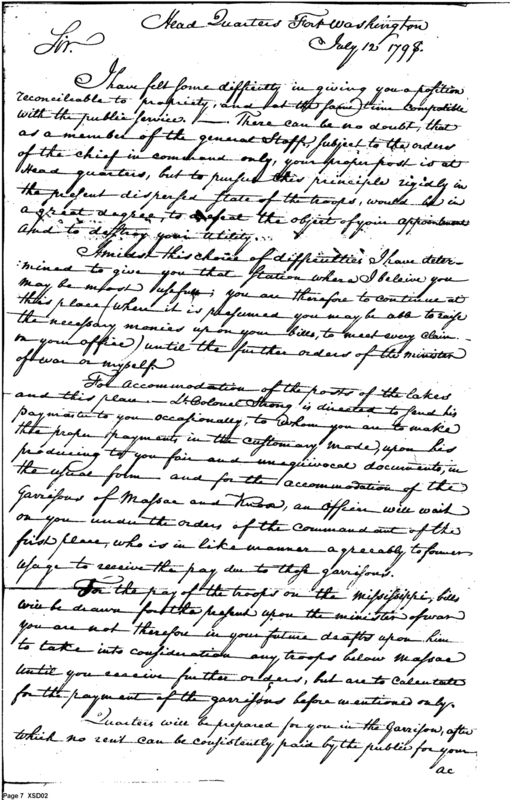 Head Quarters Fort Washington
July 12 1798.
Sir.
I have felt some difficulty in giving you a position
reconcileable to propriety, and at the same time compatible
with the public service. — There can be no doubt, that
as a member of the general Staff, subject to the orders
of the chief in command only, your proper post is at
Head quarters, but to pursue this principle rigidly in
the present dispersed state of the troops, would be in
a great degree, to defeat the object of your appointment
and to destroy your utility.
Amidst this choice of difficulties I have deter-
mined to give you that station where I beleive you
may be most useful; you are therefore to continue at
this place (where it is presumed you may be able to raise
the necessary monies upon your bills, to meet every claim
on your office) until the further orders of the minister
of war or myself.
For accommodation of the posts of the lakes
and this place — Lt Colonel Strong is directed to send his
paymaster to you occasionally, to whom you are to make
the proper payments, in the customary mode, upon his
producing to you fair and unequivocal documents, in
the usual form — and for the accommodation of the
Garrisons of Massac and Knox, an Officer will wait
on you under the orders of the commandant of the
first place, who is in like manner agreeably to former
usage to receive the pay due to those garrisons.
For the pay of the troops on the Mississippi, bills
will be drawn for the present upon the minister of war
you are not therefore in your future drafts upon him
to take into consideration any troops below Massac
until you receive further orders, but are to calculate
for the payment of the garrisons before mentioned only.
Quarters will be prepared for you in the Garrison, after
which no rent can be consistently paid by the public for your
ac
Page 7 XSD02